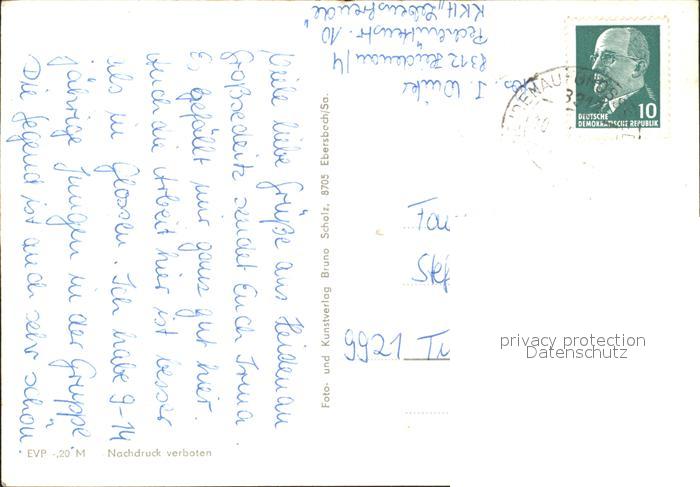 Viele liebe Grüße aus Heidenau
Großsedlitz sendet Euch Irma
Es gefällt mir ganz gut hier.
Auch die Arbeit hier ist besser
als in Glossen. Ich habe 9-14
jährige Jungen in der Gruppe
Die Gegend ist auch sehr schön.
EVP -,20 M Nachdruck verboten
Foto- und Kunstverlag Bruno Scholz, 8705 Ebersbach/Sa.
8312 Heidenau/4
10
KKH „Lebensfreude"
10
DEUTSCHE
DEMOKRATISCHE REPUBLIK
9921
privacy protection
Datenschutz